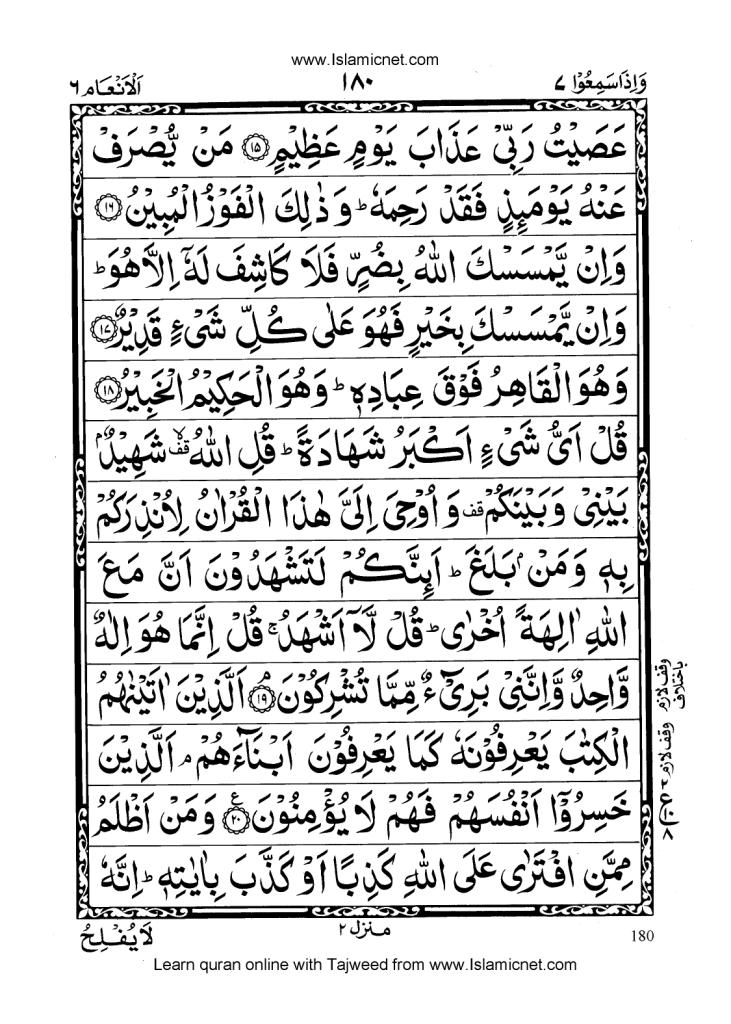 www.Islamicnet.com
وَاِذَا سَمِعُوْا ٧
١٨٠
اَلْاَنْعَام ٦
عَصَيْتُ رَبِّيْ عَذَابَ يَوْمٍ عَظِيْمٍ ١٥ مَنْ يُّصْرَفْ
عَنْهُ يَوْمَئِذٍ فَقَدْ رَحِمَهٗ ؕ وَ ذٰلِكَ الْفَوْزُ الْمُبِيْنُ ١٦
وَاِنْ يَّمْسَسْكَ اللّٰهُ بِضُرٍّ فَلَا كَاشِفَ لَهٗۤ اِلَّا هُوَ ؕ
وَاِنْ يَّمْسَسْكَ بِخَيْرٍ فَهُوَ عَلٰى كُلِّ شَىْءٍ قَدِيْرٌ ١٧
وَهُوَ الْقَاهِرُ فَوْقَ عِبَادِهٖ ؕ وَهُوَ الْحَكِيْمُ الْخَبِيْرُ ١٨
قُلْ اَىُّ شَىْءٍ اَكْبَرُ شَهَادَةً ؕ قُلِ اللّٰهُ قف شَهِيْدٌۢ
بَيْنِيْ وَبَيْنَكُمْ قف وَ اُوْحِيَ اِلَيَّ هٰذَا الْقُرْاٰنُ لِاُنْذِرَكُمْ
بِهٖ وَمَنْۢ بَلَغَ ؕ اَئِنَّكُمْ لَتَشْهَدُوْنَ اَنَّ مَعَ
اللّٰهِ اٰلِهَةً اُخْرٰى ؕ قُلْ لَّاۤ اَشْهَدُ ۚ قُلْ اِنَّمَا هُوَ اِلٰهٌ
وَّاحِدٌ وَّاِنَّنِيْ بَرِيْٓءٌ مِّمَّا تُشْرِكُوْنَ ۘ ١٩ اَلَّذِيْنَ اٰتَيْنٰهُمُ
الْكِتٰبَ يَعْرِفُوْنَهٗ كَمَا يَعْرِفُوْنَ اَبْنَآءَهُمْ ۘ اَلَّذِيْنَ
خَسِرُوْۤا اَنْفُسَهُمْ فَهُمْ لَا يُؤْمِنُوْنَ ٢٠ ع وَمَنْ اَظْلَمُ
مِمَّنِ افْتَرٰى عَلَى اللّٰهِ كَذِبًا اَوْ كَذَّبَ بِاٰيٰتِهٖ ؕ اِنَّهٗ
وقف لازم
باختلاف
وقف لازم
لَا يُفْلِحُ
منزل ٢
180
Learn quran online with Tajweed from www.Islamicnet.com